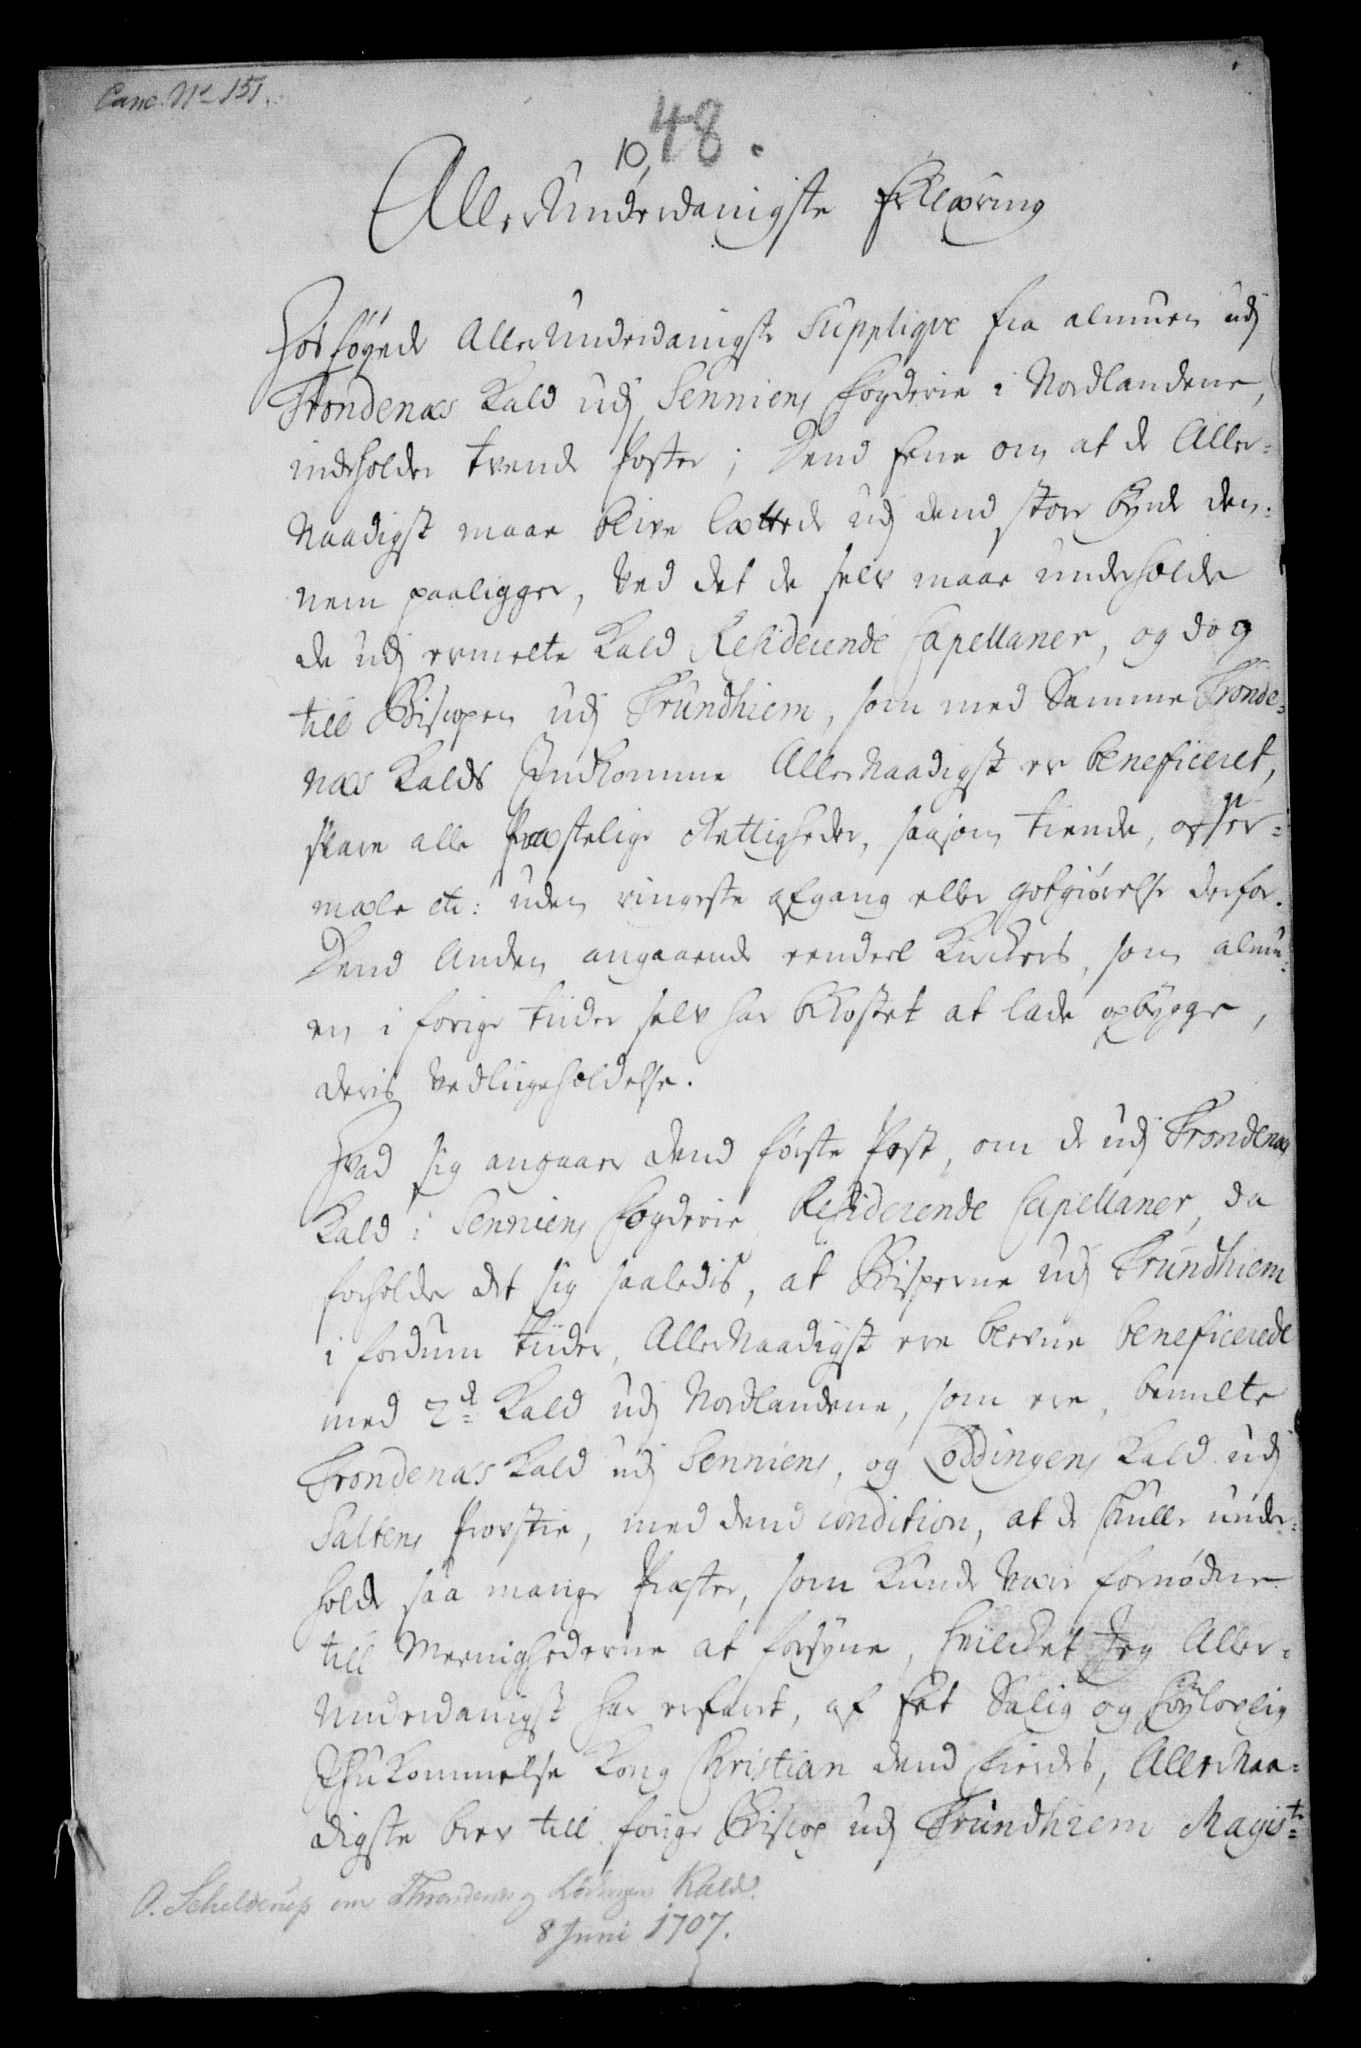 Canc. No 151.
48.
10,
AllerUnderdanigste Erklæring
Hosføyede AllerUnderdanigste Supplique fra almuen udj
Trondenæs Kald udj Senniens fogderie i Nordlandene,
indeholder tvende Poster; Dend Eene om at de Aller=
Naadigst maae blive lættede udj dend stoer byrde den=
nem paaligger, ved det de selv maae underholde
de udj ermelte Kald Residerende Capellaner, og dog
till Biscopen udj Trundhiem, som med Samme Tronde=
næs Kalds Indkomme AllerNaadigst er beneficeret,
svare alle Præstelige Rettigheder, saasom tiende, offer=
mæle etc: uden ringeste afgang eller gotgiørelse derfor.
Dend Anden angaaende eendeel Kirckers, som almu=
en i forige tiider selv har bekostet at lade opbygge,
deris vedliigeholdelse.
Hvad sig angaaer dend første Post, om de udj Trondenæs
Kald i Senniens fogderie Residerende Capellaner, da
forholder det sig saaledis, at Bisperne udj Trundhiem
i fordum tiider, AllerNaadigst ere blevne beneficerede
med 2de Kald udj Nordlandene, som ere, bemelte
Trondenæs Kald udj Senniens, og Loddingens Kald udj
Saltens Provstie, med dend condition, at de skulle under=
holde saa mange Præster, som kunde være fornødne
till Meenighederne at forsyne, hvilcket Jeg Aller=
Underdanigst har erfaret, af høt Salig og Høylovlig
Ihukommelse Kong Christian dend fierdes, AllerNaa=
digste brev till forige Biscop udj Trundhiem Magist:
O. Schelderup om Throndenes og Lødingen Kald.
8 Juni 1707.